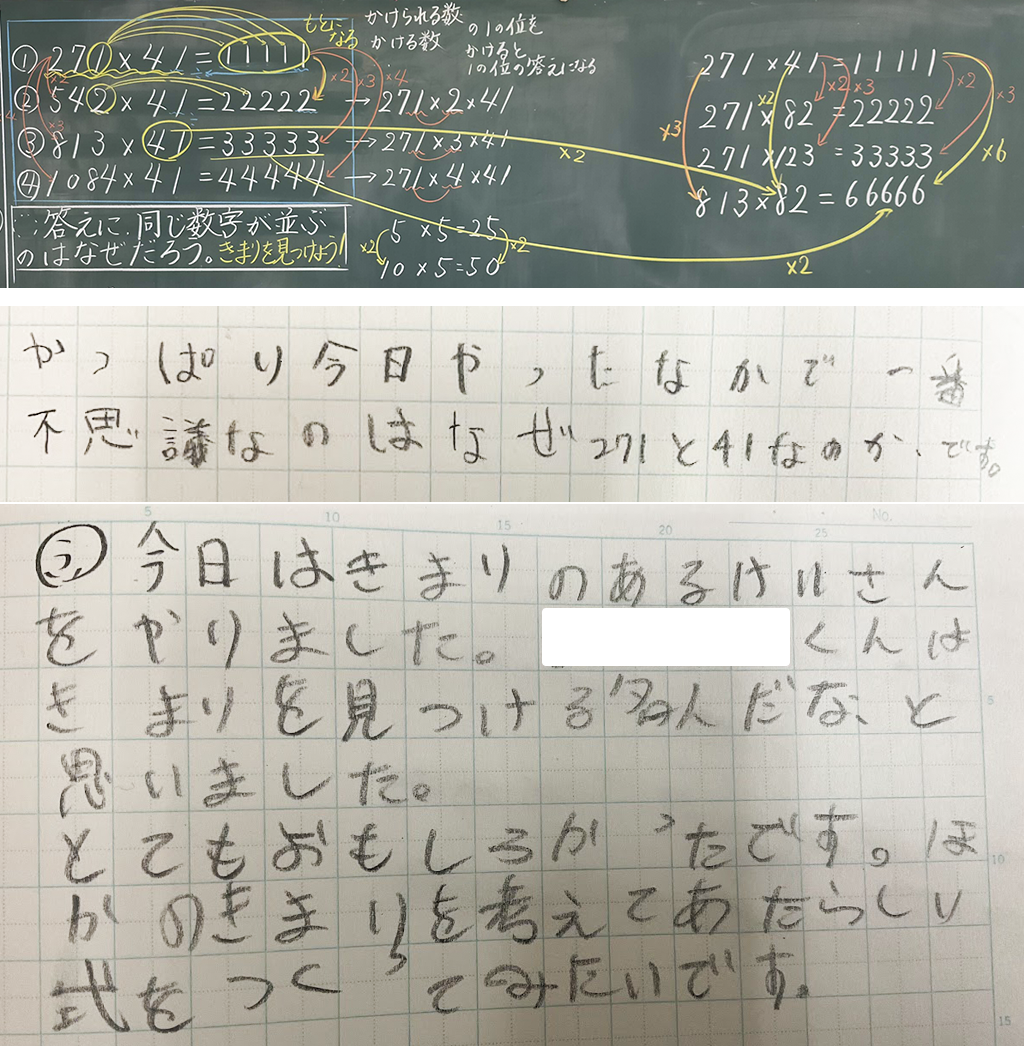 もとになる
かけられる数
かける数
の1の位を
かけると
1の位の答えになる
① 271×41=11111
×2 ×3 ×4
② 542×41=22222 → 271×2×41
③ 813×41=33333 → 271×3×41
④ 1084×41=44444 → 271×4×41
×2
答えに、同じ数字が並ぶ
のはなぜだろう。きまりを見つけよう!
×2 5×5=25 ×2
10×5=50
×2
271×41=11111
×2 ×3 ×2 ×3
271×82=22222
×2
×3
271×123=33333
×6
813×82=66666
かっぱり今日やったなかで一番
不思議なのはなぜ271と41なのか、です。
う 今日はきまりのあるけいさん
をやりました。
くんは
きまりを見つける名人だな、と
思いました。
とてもおもしろかったです。ほ
かのきまりを考えてあたらしい
式をつくってみたいです。